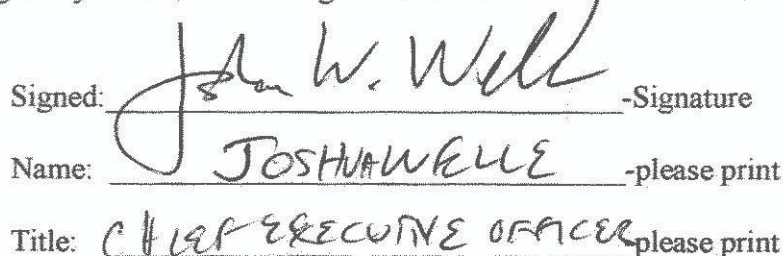 Signed: John W. Well -Signature
Name: JOSHUA WELLE -please print
Title: CHIEF EXECUTIVE OFFICER please print